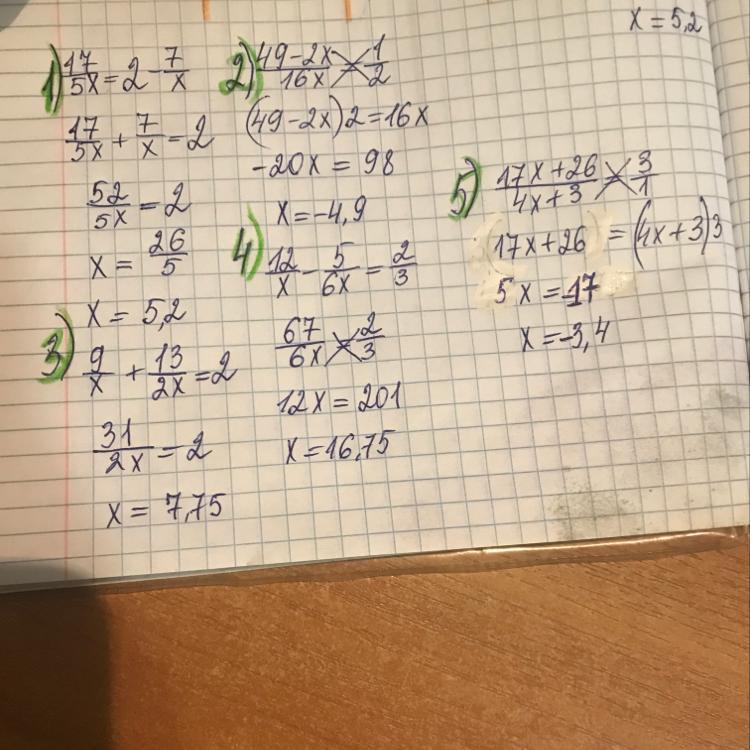 x = 5,2
1) 17/5x = 2 - 7/x
17/5x + 7/x = 2
52/5x = 2
x = 26/5
x = 5,2
2) 49-2x/16x = 1/2
(49-2x)2=16x
-20x = 98
x=-4,9
3) 9/x + 13/2x = 2
31/2x = 2
x = 7,75
4) 12/x - 5/6x = 2/3
67/6x = 2/3
12x = 201
x = 16,75
5) 17x+26/4x+3 = 3/1
(17x+26) = (4x+3)3
5x = -17
x = -3,4